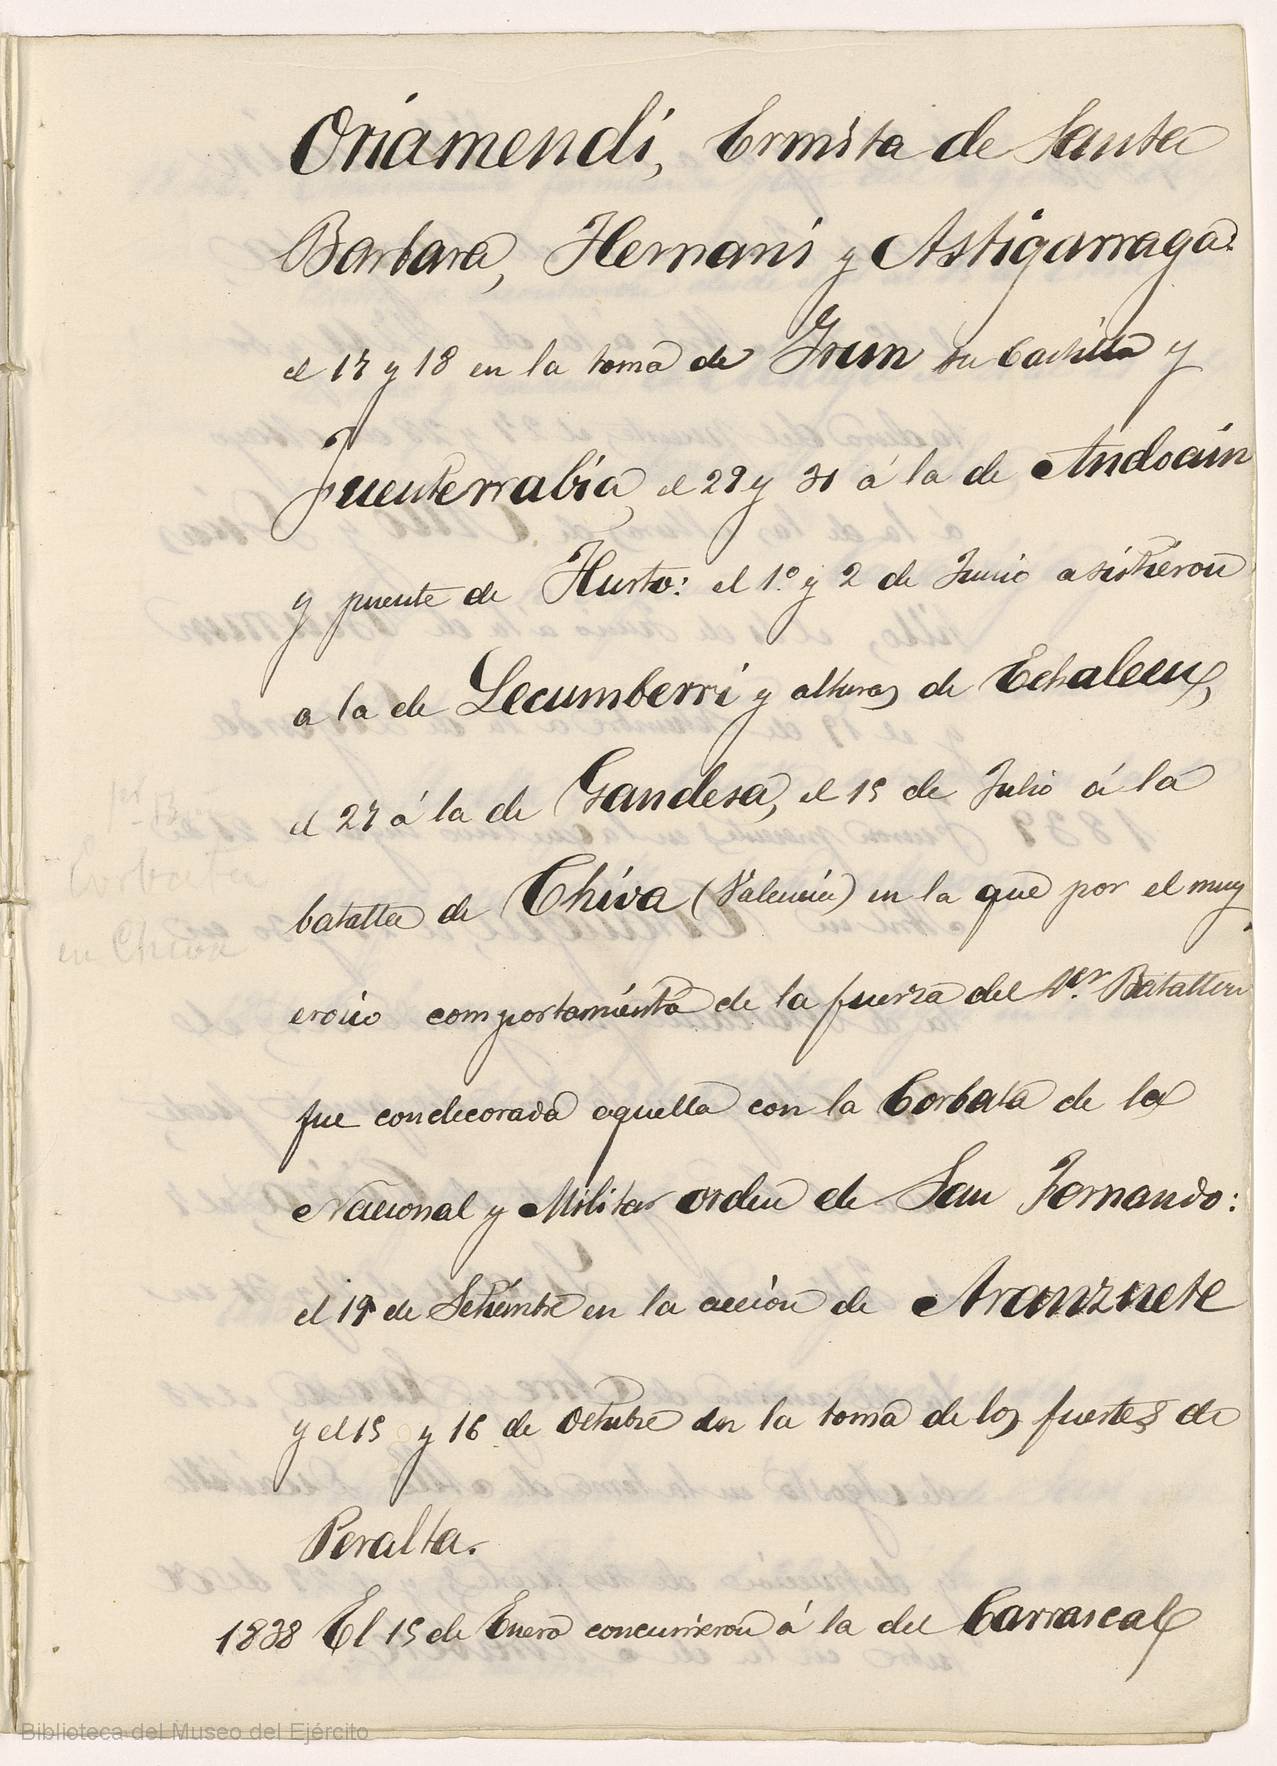 Oriamendi, Ermita de Santa
Barbara, Hernani y Astigarraga:
el 17 y 18 en la toma de Irun su Castillo y
Fuenterrabia, el 29 y 31 á la de Andoain
y puente de Hurto: el 1º y 2 de Junio asistieron
a la de Lecumberri y alturas de Echalecu,
el 27 á la de Gandesa, el 15 de Julio á la
batalla de Chiva (Valencia) en la que por el muy
eroico comportamiento de la fuerza del 1er Batallon
fue condecorada aquella con la Corbata de la
Nacional y Militar orden de San Fernando:
el 19 de Setiembre en la acción de Aranzuete
y el 15 y 16 de Octubre en la toma de los fuertes de
Peralta.
1838 El 15 de Enero concurrieron á la del Carrascal
1er B.
Corbata
en Chiva
Biblioteca del Museo del Ejército